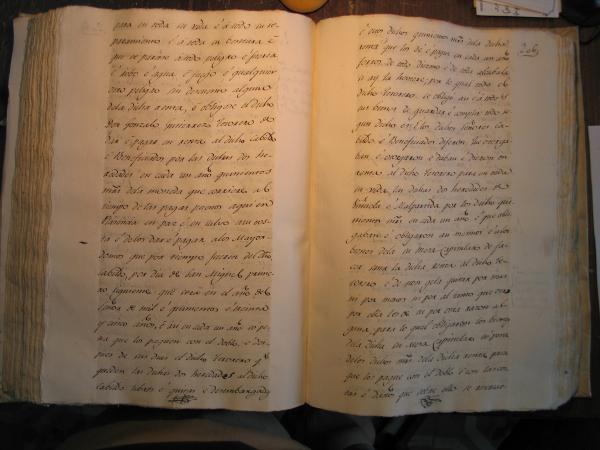 para en toda su vida é á todo su re-
paramiento é á toda su ventura é
que se parare á todo peligro é fuerza
é robo é agua é fuego é qualquier
otro peligro sin descuento alguno
dela dicha renta, é obligose el dicho
Don Gonzalo Gutierrez Tesorero de
dar é pagar en renta al dicho Cabildo
é Beneficiados por las dichas dos he-
redades en cada un año quinientos
mrs dela moneda que corriere al
tiempo de las pagas puestos aquí en
Plasencia en paz é en salvo á su cos-
ta é delos dar é pagar alos Mayor-
domos que por tiempo fueren del dho
Cabildo, por dia de San Miguel prime-
ro siguiente que será en el año del
Señor de mil é quinientos é treinta
y cinco años, é asi en cada un año so pe-
na que lo paguen con el doblo, é des-
pues de sus dias el dicho Tesorero qe
queden las dichas dos heredades al dicho
Cabildo libres é quitas é desembargadas
é otros dichos quinientos mrs dela dicha
renta que les dé é pague en cada un año
forros de todo diezmo é de toda alcabala
si ay la hoviere, por lo qual todo el
dicho Tesorero se obligó asi é á todos
sus bienes de guardar é complir todo se-
gun dicho es; é los dichos Señores Ca-
bildo é Beneficiados dijeron que otorga-
ban é otorgaron é daban é dieron en
renta al dicho Tesorero para en toda
su vida las dichas dos heredades de
é Malpartida por los dichos qui-
nientos mrs en cada un año é que obli-
gaban é obligaron á sí mismos é á los
bienes dela su Mesa Capitular de fa-
cer sana la dicha renta al dicho Te-
sorero, é de non gela quitar por mas
ni por menos ni por al tanto que otro
por ella les dé ni por otra razon al-
guna, para lo qual obligaron los bienes
dela dicha su Mesa Capitular so pena
delos dichos mrs dela dicha renta para
que los pague con el doblo é con las cos-
tas é daños que sobre ello se